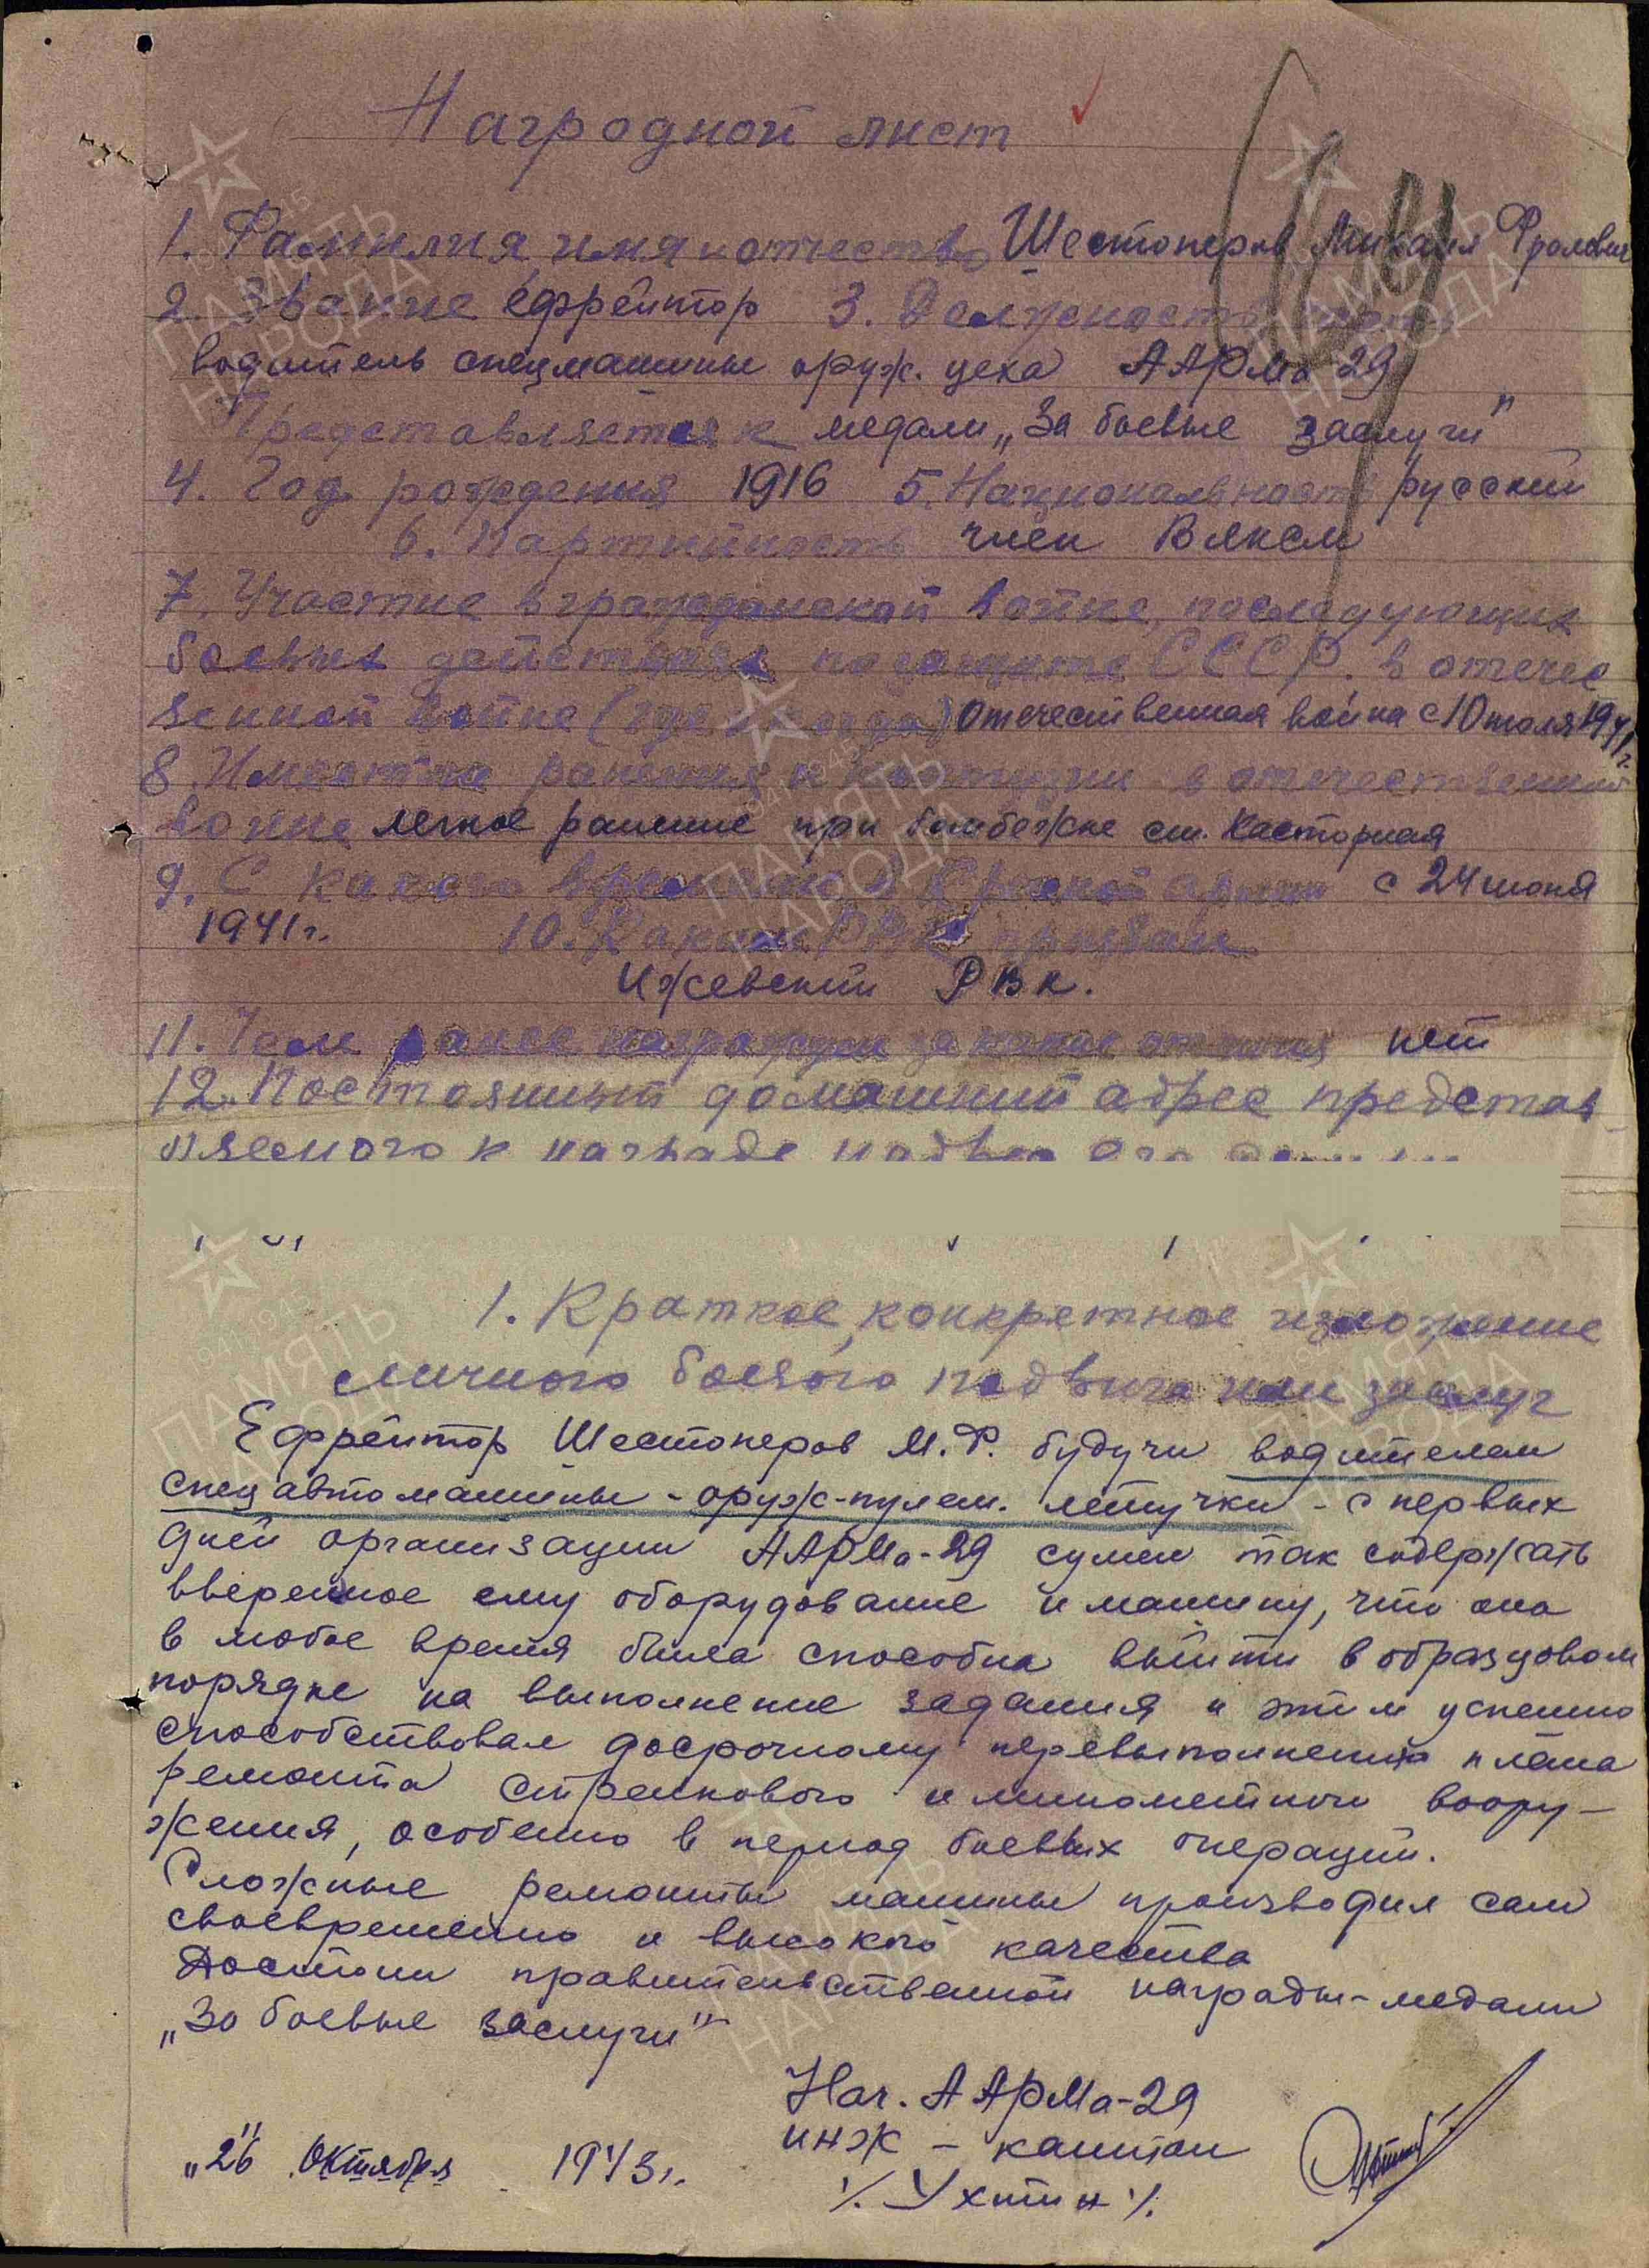 Наградной лист
1. Фамилия, имя и отчество Шестоперов Михаил Фролович
2. Звание ефрейтор 3. Должность
водитель спецмашины оруж. цеха ААРМа 29
Представляется к медали „За боевые заслуги"
4. Год рождения 1916 5. Национальность русский
6. Партийность член ВЛКСМ
7. Участие в гражданской войне, последующих
боевых действиях по защите СССР. в отечес
венной войне (где и когда) Отечественная война с 10 июля 1941 г.
8. Имеет ли ранения и контузии в отечественной
войне легкое ранение при бомбежке ст. Касторная
9. С какого времени в Красной армии с 24 июня
1941 г. 10. Каким РВК призван
Ижевский РВК.
11. Чем ранее награжден за какие отличия нет
12. Постоянный домашний адрес представ
ляемого к награде и адрес его
1. Краткое, конкретное изложение
личного боевого подвига или заслуг
Ефрейтор Шестоперов М.Ф. будучи водителем
спецавтомашины - оруж-пулем. летучки - с первых
дней организации ААРМа-29 сумел так содержать
вверенное ему оборудование и машину, что она
в любое время была способна выйти в образцовом
порядке на выполнение задания и этим успешно
способствовал досрочному перевыполнению плана
ремонта стрелкового и минометного воору-
жения, особенно в период боевых операций.
Сложные ремонты машины производил сам
своевременно и высокого качества
Достоин правительственной награды - медали
„За боевые заслуги"
Нач. ААРМа-29
инж - капитан
/. Ухтин /.
„26" Октября 1943 г.
ПАМЯТЬ
НАРОДА